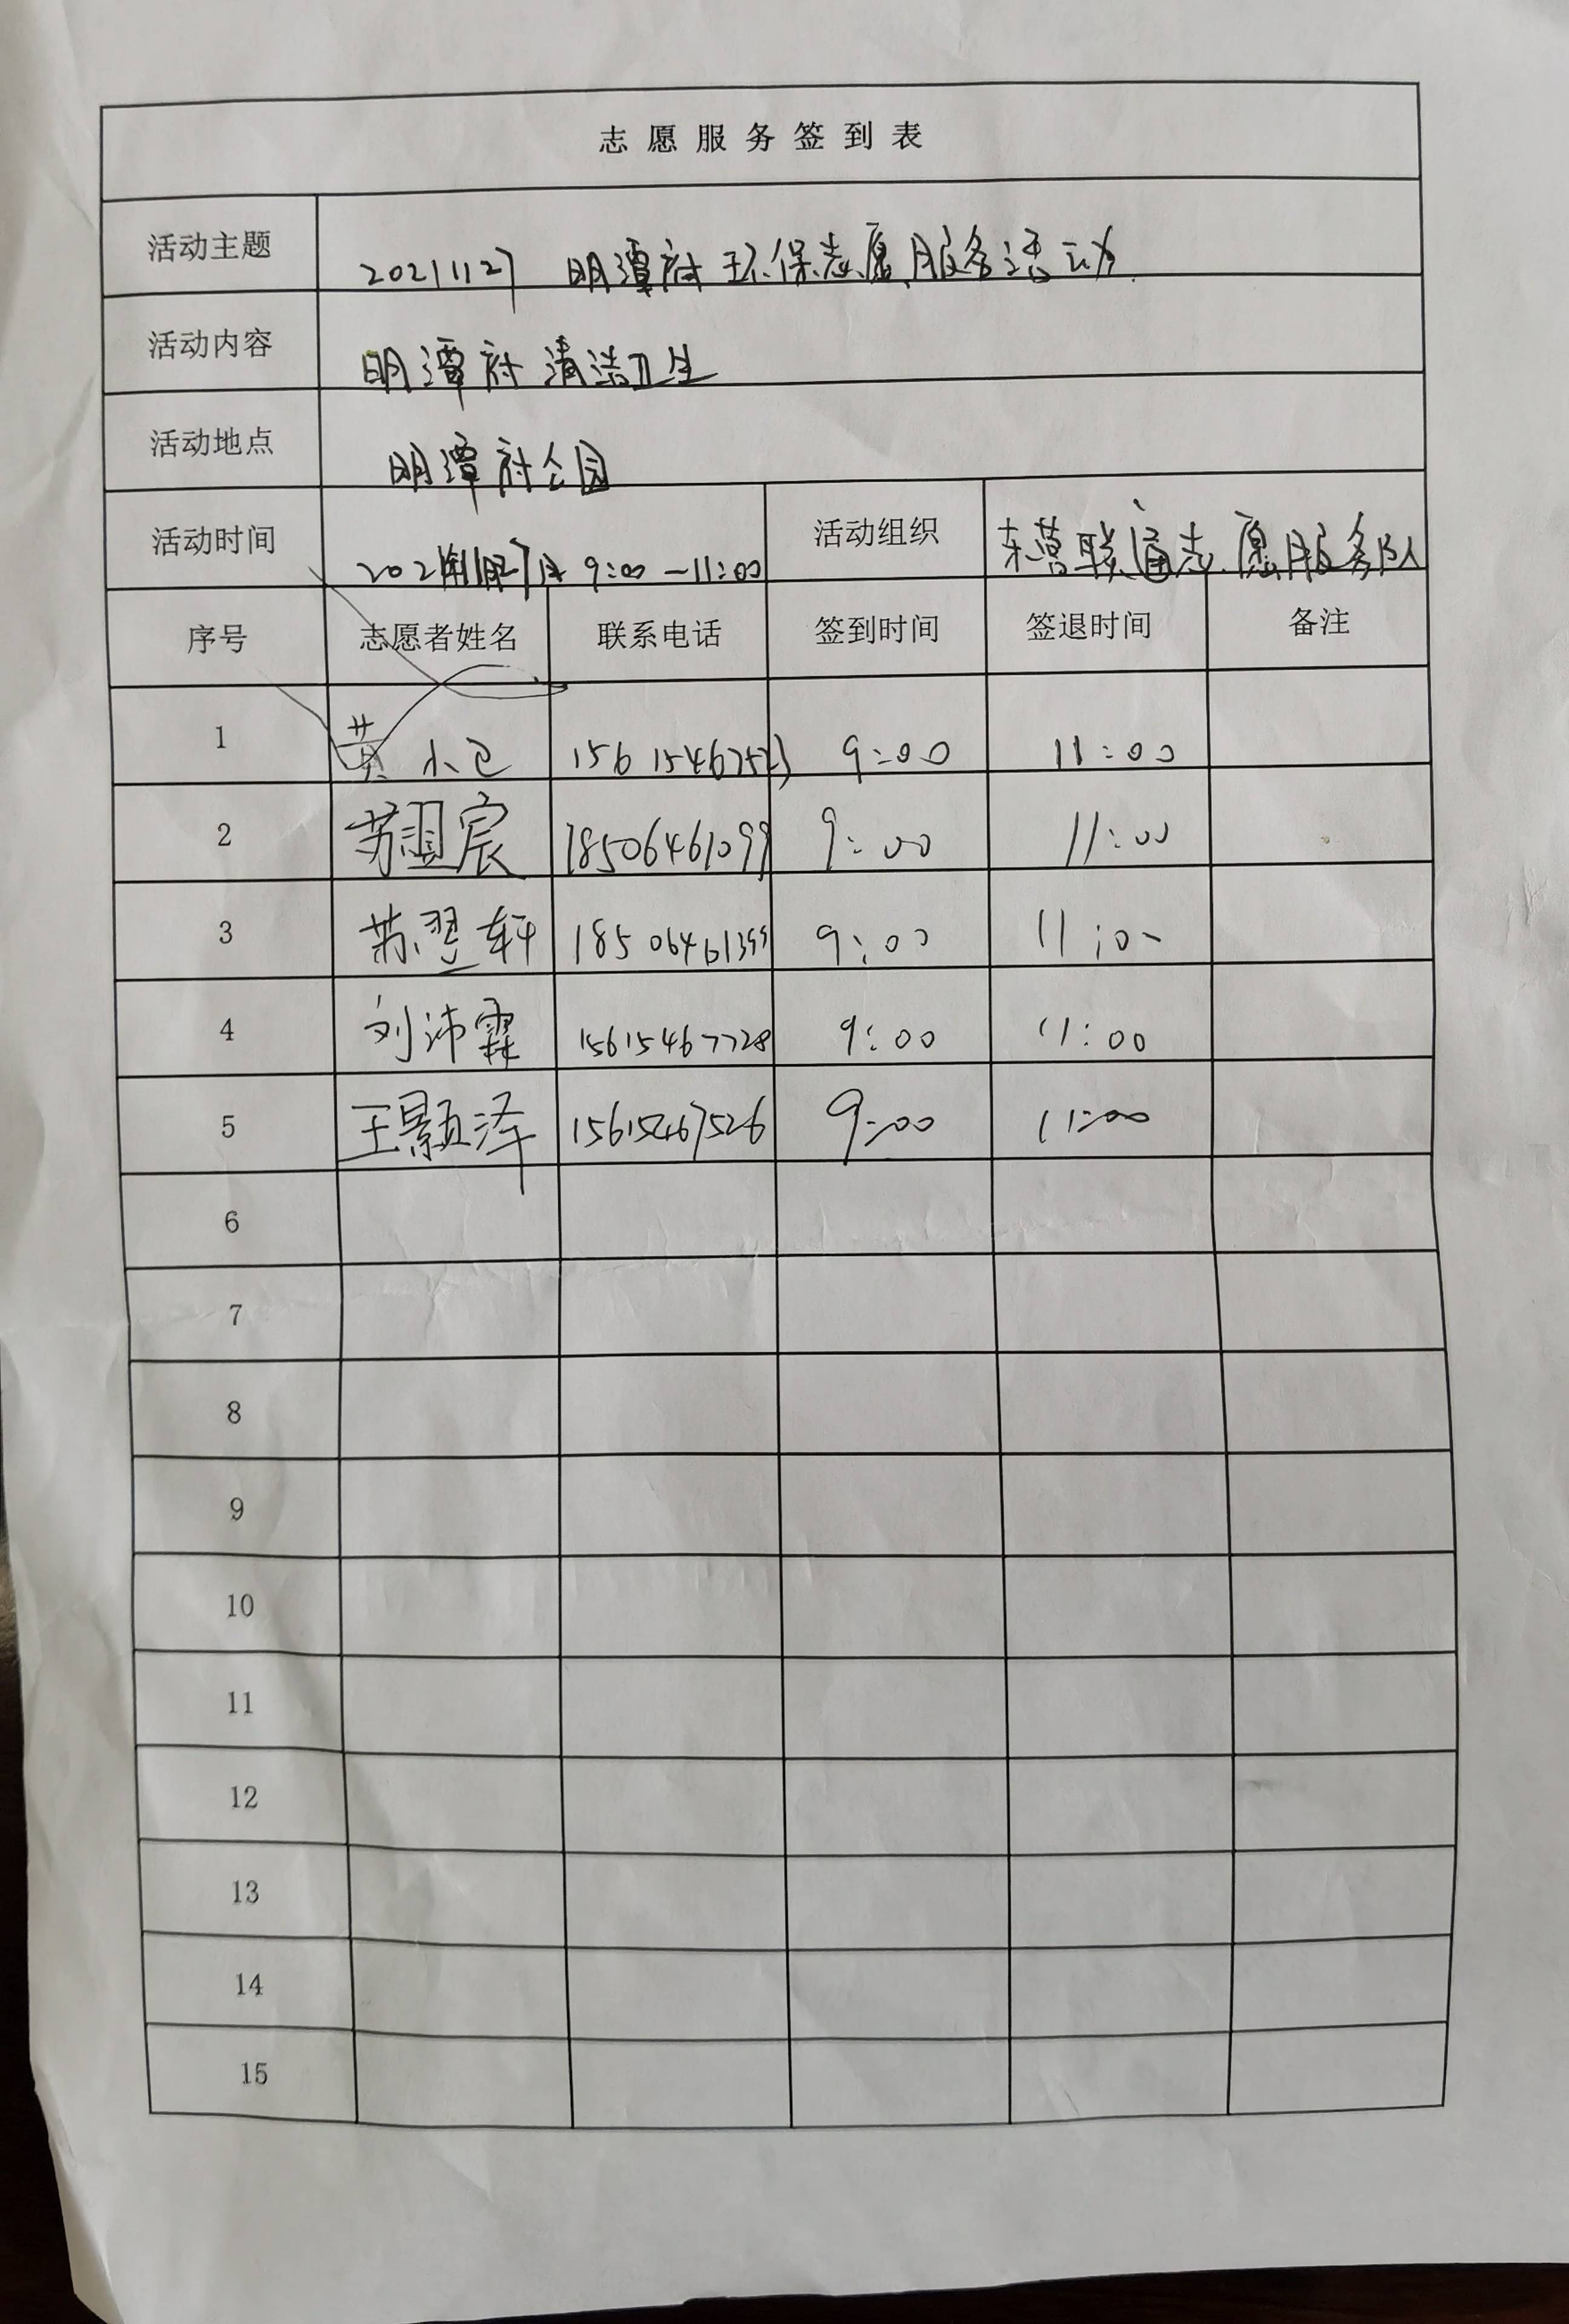 志愿服务签到表
活动主题 20211127 明潭府环保志愿服务活动
活动内容 明潭府清洁卫生
活动地点 明潭府公园
活动时间 2021年11月27日 9:00-11:00 活动组织 东营联通志愿服务队
序号 志愿者姓名 联系电话 签到时间 签退时间 备注
1 黄小 9:00 11:00
2 苏翌宸 18506461099 9:00 11:00
3 苏翌轩 18506461399 9:00 11:00
4 刘沛霖 15615467728 9:00 11:00
5 王颢泽 15615467526 9:00 11:00
6
7
8
9
10
11
12
13
14
15